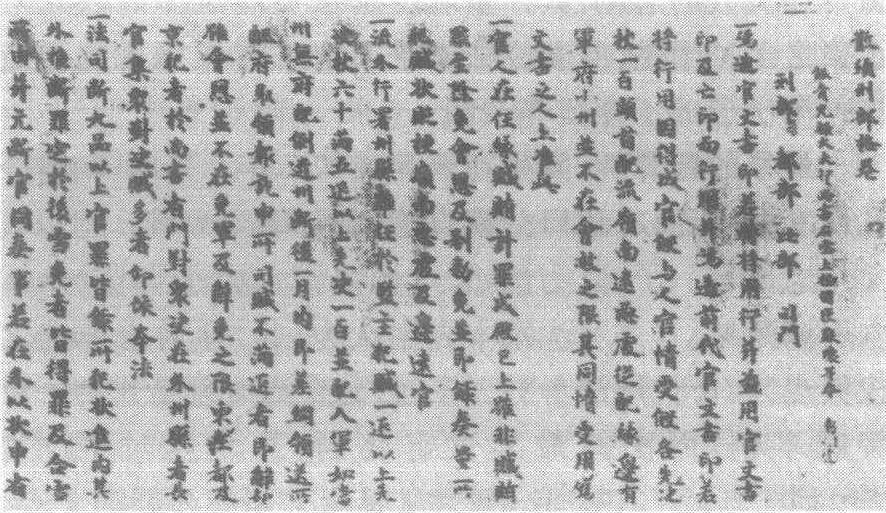 散頒刑部格卷
銀青光祿大夫行尚書右丞上柱國臣蘇瓌等奉 勅刪定
刑部 都部 比部 司門
一偽造官文書印若轉將用行并盜用官文書
印及亡印而行用并偽造前代官文書印若
將行用因得成官假与人官情受假各先決
杖一百頭首配流嶺南遠惡處從配緣邊有
軍府小州並不在會赦之限其同情受用偽
文書之人亦准此
一官人在任緣贓賄計罪成殿已上雖非贓賄
罪至除免會恩及別勅免並即錄奏量所
犯贓狀貶授嶺南惡處及邊遠官
一流外行署州縣雜任於監主犯贓一疋以上先
決杖六十滿五疋以上先決一百並配入軍如當
州無府配側近州斷後一月內即差綱領送所
配府取領報訖申所司贓不滿疋者即解却
雖會恩並不在免軍及解免之限東都及
京犯者於尚書省門對衆決在外州縣者長
官集衆對決贓多者仍依本法
一法司斷九品以上官罪皆錄所犯狀進內其
外推斷罪定於後雪免者皆得罪及合雪
所由并元斷官同奏事若在外以狀申省